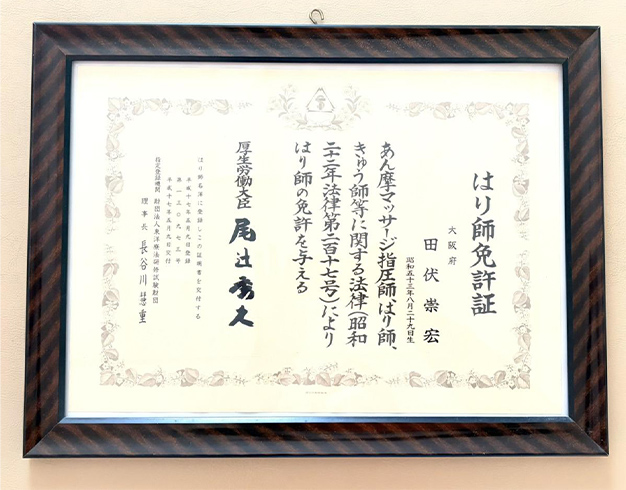 はり師免許証
大阪府
田伏崇宏
昭和五十三年八月二十九日生
あん摩マッサージ指圧師、はり師、
きゅう師等に関する法律(昭和
二十二年法律第二百十七号)により
はり師の免許を与える
厚生労働大臣 尾辻秀久
はり師名簿に登録しこの証明書を交付する
平成十七年五月九日登録
第一三〇九七三号
平成十七年五月九日交付
指定登録機関 財団法人東洋療法研修試験財団
理事長 長谷川慧重